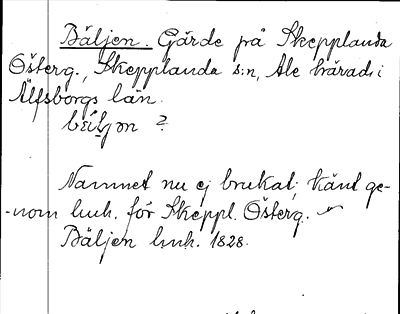 Bäljen. Gärde på Skepplanda
Österg., Skepplanda s:n, Ale härad i
Älfsborgs län.
?
Namnet nu ej brukat; känt ge-
-nom luh. för Skeppl. Österg.
Bäljen luh. 1828.